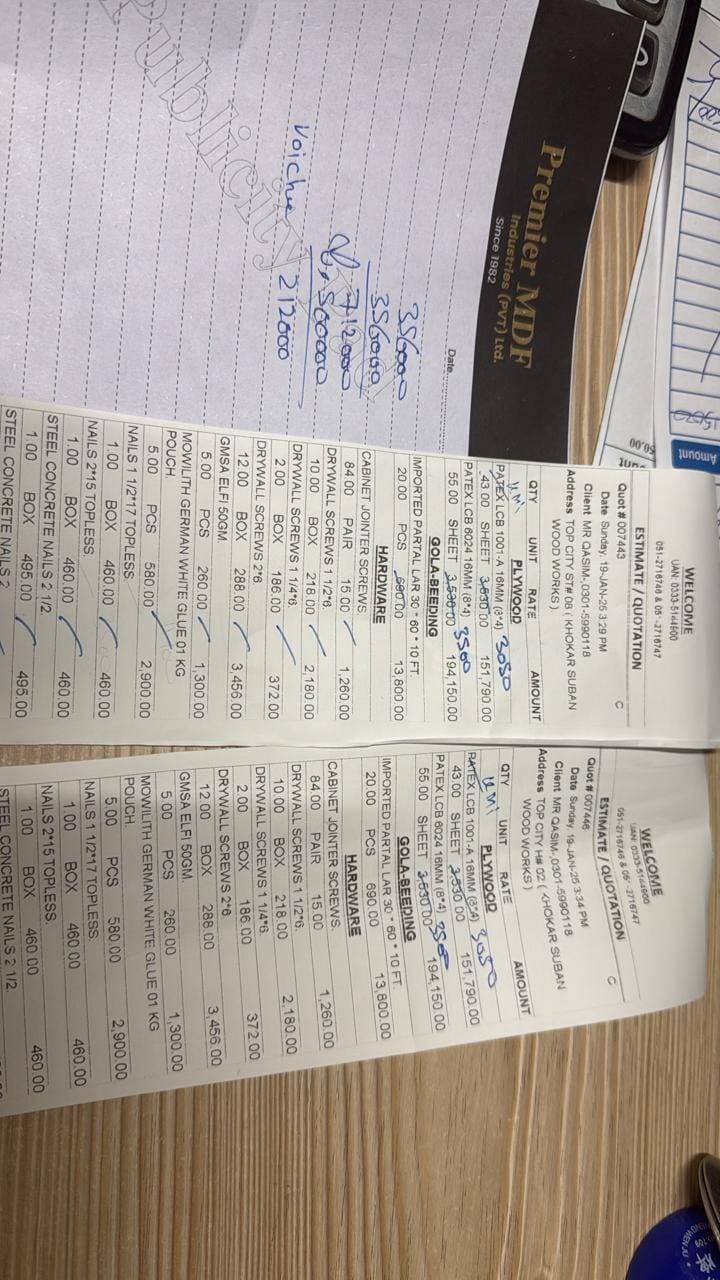 Premier MDF
Industries (PVT) Ltd.
Since 1982
Date
Publicity
356000
356000
712000
500000
212000
Amount
50.00
WELCOME
UAN: 0333-5144900
051-2716746 & 051-2716747
ESTIMATE / QUOTATION
Quot # 007443 C
Date Sunday, 19-JAN-25 3:29 PM
Client MR QASIM-,0301-5990118
Address TOP CITY ST# 08 ( KHOKAR SUBAN
WOOD WORKS )
QTY UNIT RATE AMOUNT
PLYWOOD
UMi 3050
PATEX LCB 1001-A 16MM (8*4)
43.00 SHEET 3,530.00 151,790.00
PATEX LCB 6024 16MM (8*4) 3500
55.00 SHEET 3,530.00 194,150.00
GOLA-BEEDING
IMPORTED PARTAL LAR 30 * 60 * 10 FT.
20.00 PCS 690.00 13,800.00
HARDWARE
CABINET JOINTER SCREWS.
84.00 PAIR 15.00 1,260.00
DRYWALL SCREWS 1 1/2*6.
10.00 BOX 218.00 2,180.00
DRYWALL SCREWS 1 1/4*6.
2.00 BOX 186.00 372.00
DRYWALL SCREWS 2*6.
12.00 BOX 288.00 3,456.00
GMSA ELFI 50GM.
5.00 PCS 260.00 1,300.00
MOWILITH GERMAN WHITE GLUE 01 KG
POUCH.
5.00 PCS 580.00 2,900.00
NAILS 1 1/2*17 TOPLESS.
1.00 BOX 460.00 460.00
NAILS 2*15 TOPLESS.
1.00 BOX 460.00 460.00
STEEL CONCRETE NAILS 2 1/2.
1.00 BOX 495.00 495.00
STEEL CONCRETE NAILS 2
WELCOME
UAN: 0333-5144900
051-2716746 & 051-2716747
ESTIMATE / QUOTATION
Quot # 007446 C
Date Sunday, 19-JAN-25 3:34 PM
Client MR QASIM-,0301-5990118
Address TOP CITY H# 02 ( KHOKAR SUBAN
WOOD WORKS )
QTY UNIT RATE AMOUNT
PLYWOOD
UMi 3050
PATEX LCB 1001-A 16MM (8*4)
43.00 SHEET 3,530.00 151,790.00
PATEX LCB 6024 16MM (8*4) 3500
55.00 SHEET 3,530.00 194,150.00
GOLA-BEEDING
IMPORTED PARTAL LAR 30 * 60 * 10 FT.
20.00 PCS 690.00 13,800.00
HARDWARE
CABINET JOINTER SCREWS.
84.00 PAIR 15.00 1,260.00
DRYWALL SCREWS 1 1/2*6.
10.00 BOX 218.00 2,180.00
DRYWALL SCREWS 1 1/4*6
2.00 BOX 186.00 372.00
DRYWALL SCREWS 2*6.
12.00 BOX 288.00 3,456.00
GMSA ELFI 50GM.
5.00 PCS 260.00 1,300.00
MOWILITH GERMAN WHITE GLUE 01 KG
POUCH
5.00 PCS 580.00 2,900.00
NAILS 1 1/2*17 TOPLESS.
1.00 BOX 460.00 460.00
NAILS 2*15 TOPLESS.
1.00 BOX 460.00 460.00
STEEL CONCRETE NAILS 2 1/2